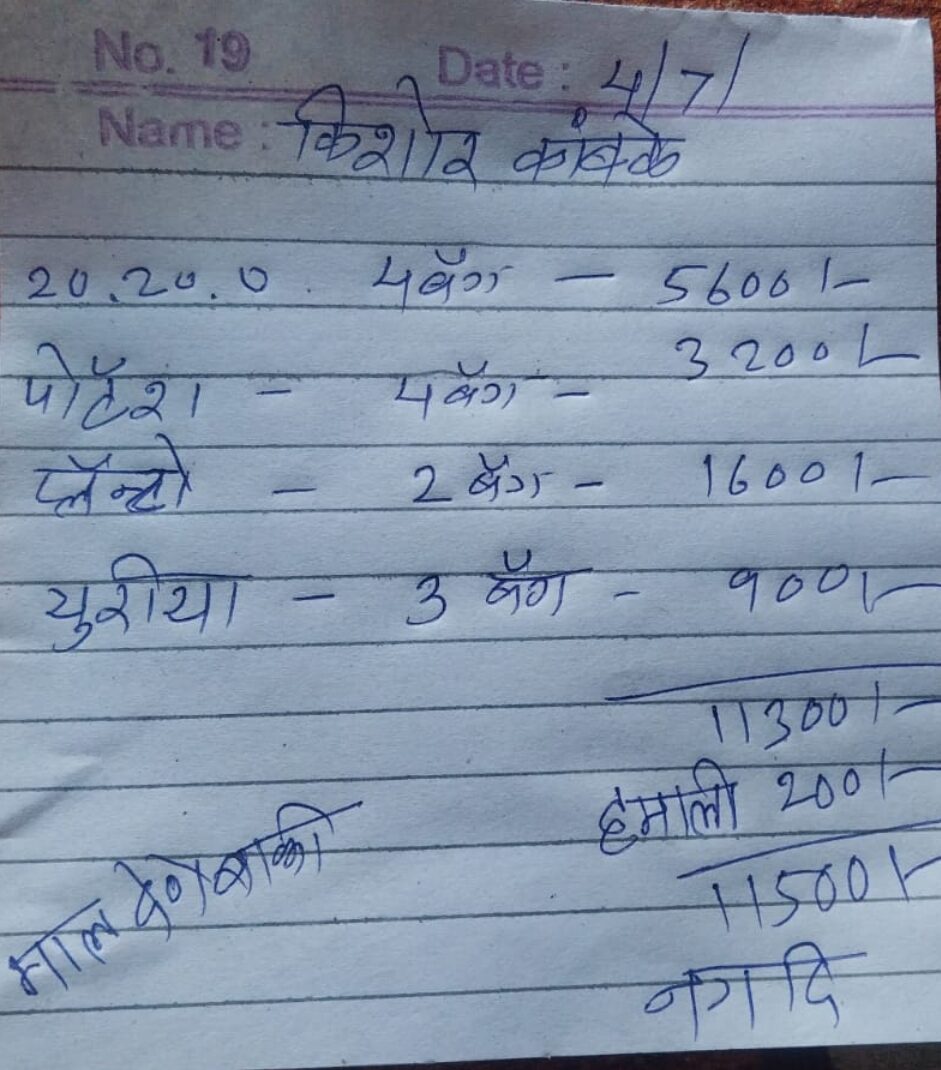 No. 19 Date : 4/7/
Name : किशोर कांबळे
20.20.0. 4 बॅग — 5600/-
पोटॅश - 4 बॅग - 3200/-
प्लॅन्टो - 2 बॅग - 1600/-
युरीया - 3 बॅग - 900/-
11300/-
हमाली 200/-
11500/-
माल देणे बाकी
नगदि